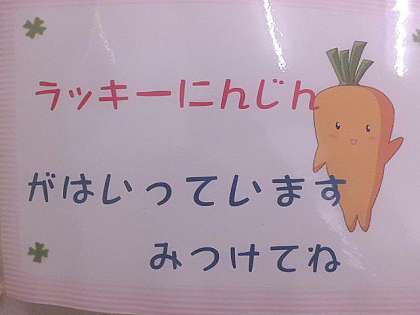 ラッキーにんじん
がはいっています
みつけてね